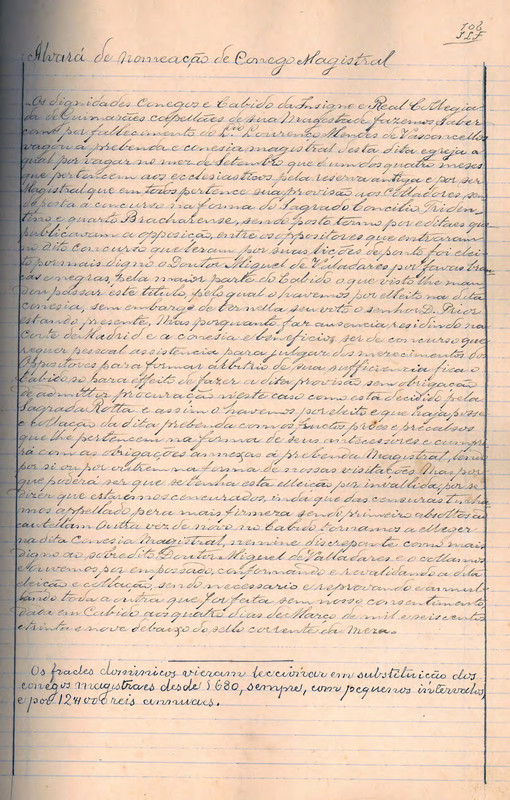 106
Alvará de nomeação de Conego Magistral
Os dignidades Conegos e Cabido da Insigne e Real Collegia-
da de Guimarães capellães de sua Magestade fazemos saber
como por fallecimento do L.do Lourenço Mendes de Vasconcellos
vagou a prebenda e conesia magistral desta dita egreja a
qual por vagar no mez de Setembro que é um dos quatro mezes
que pertencem aos ecclesiasticos pela reserva antiga e por ser
Magistral que em todos pertence sua provisão aos Colladores, sen-
do posta a concurso na forma do Sagrado Concilio Triden-
tino e quarto Bracharense, sendo posto termo por editaes que
publicavam a opposição, entre os oppositores que entraram
no dito concurso que leram por suas lições de ponto foi elei-
to por mais digno o Doutor Miguel de Valladares por favas bran-
cas e negras, pela maior parte do Cabido o que visto lhe man-
dou passar este titulo, pelo qual o havemos por eleito na dita
conesia, sem embargo de ter nella seu voto o senhor D. Prior
estando presente, Mas porquanto faz ausencia residindo na
corte de Madrid e a conesia e beneficio ser de concurso que
requer pessoal assistencia para julgar dos merecimentos dos
Oppositores para formar arbitrio de sua sufficiencia fica o
Cabido só para effeito de fazer a dita provisão sem obrigação
de admittir procuração neste caso como está decidido pela
Sagrada Rotta e assim o havemos por eleito e que haja posse
e collação da dita prebenda com os fructos, prées e precalsos
que lhe pertencem na forma de seus antecessores e cumpri-
rá com as obrigações annexas á prebenda Magistral, lendo
por si ou por outrem na forma de nossas visitações Mas por-
que poderá ser que se tenha esta elleição por invallida, por se
dizer que estavamos censurados, inda que das censuras tinha-
mos appellado pera mais firmeza sendo primeiro absoltos ao
cautellam outra vez de novo no Cabido tornamos a elleger
na dita Conesia Magistral, nemine discrepante como mais
digno ao sobredito Doutor Miguel de Valladares e o collamos
e houvemos por empossado, conformando e revalidando a dita
eleição e collação, sendo necessario e reprovando e annul-
lando toda a outra que for feita sem nosso consentimento,
data em Cabido aos quatro dias de Março de mil e seiscentos
e trinta e nove debaixo do sello corrente da Meza.
Os frades dominicos vieram leccionar em substituição dos
conegos magistraes desde 1680, sempre, com pequenos intervalos,
e por 12400 reis annuaes.